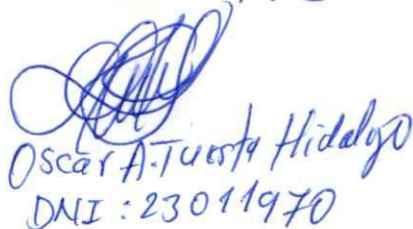 Oscar A. Tuesta Hidalgo
DNI : 23011970